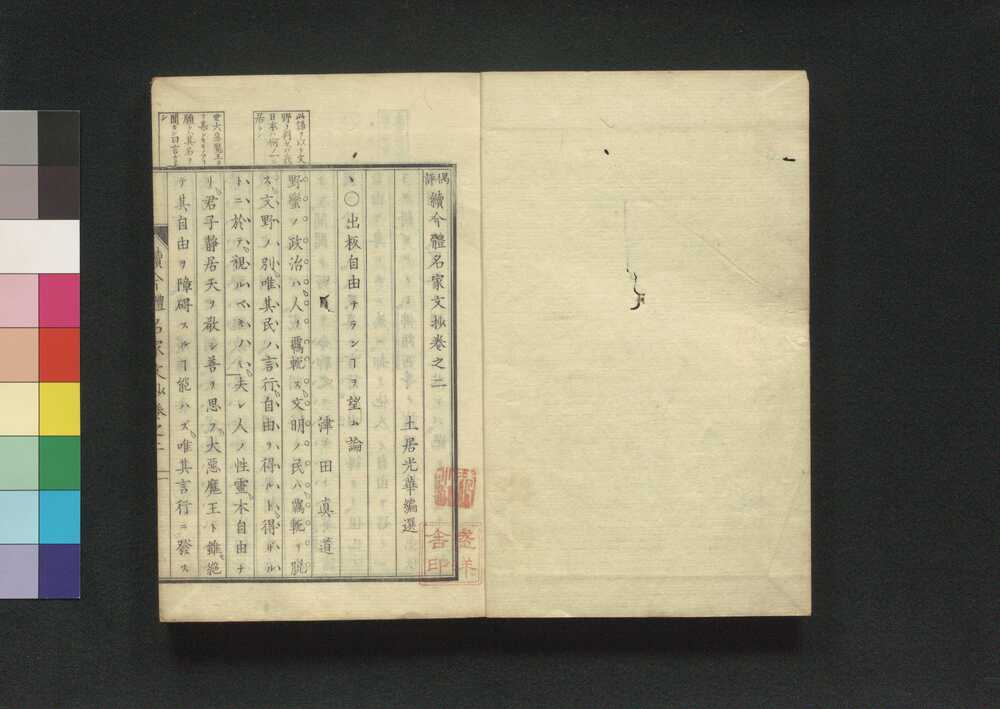 偶評
續今體名家文抄卷之二
土居光華編選
〇出板自由ナランヿヲ望ム論
津田真道
野蠻ノ政治ハ人ヲ羈軛ス文明ノ民ハ羈軛ヲ脱
ス文野ノ別唯其民ハ言行自由ヲ得ルト得ザル
トニ於テ視ルベキノミ夫レ人ノ性靈本自由ナ
リ君子靜居天ヲ敬シ善ヲ思フ大惡魔王ト雖絶
テ其自由ヲ障碍スルヿ能ハズ唯其言行ニ發ス
此語ヲ以テ文
野ヲ判ゼバ我
日本ハ何ノ
居ラン
續今體名家文抄卷之二
舎印